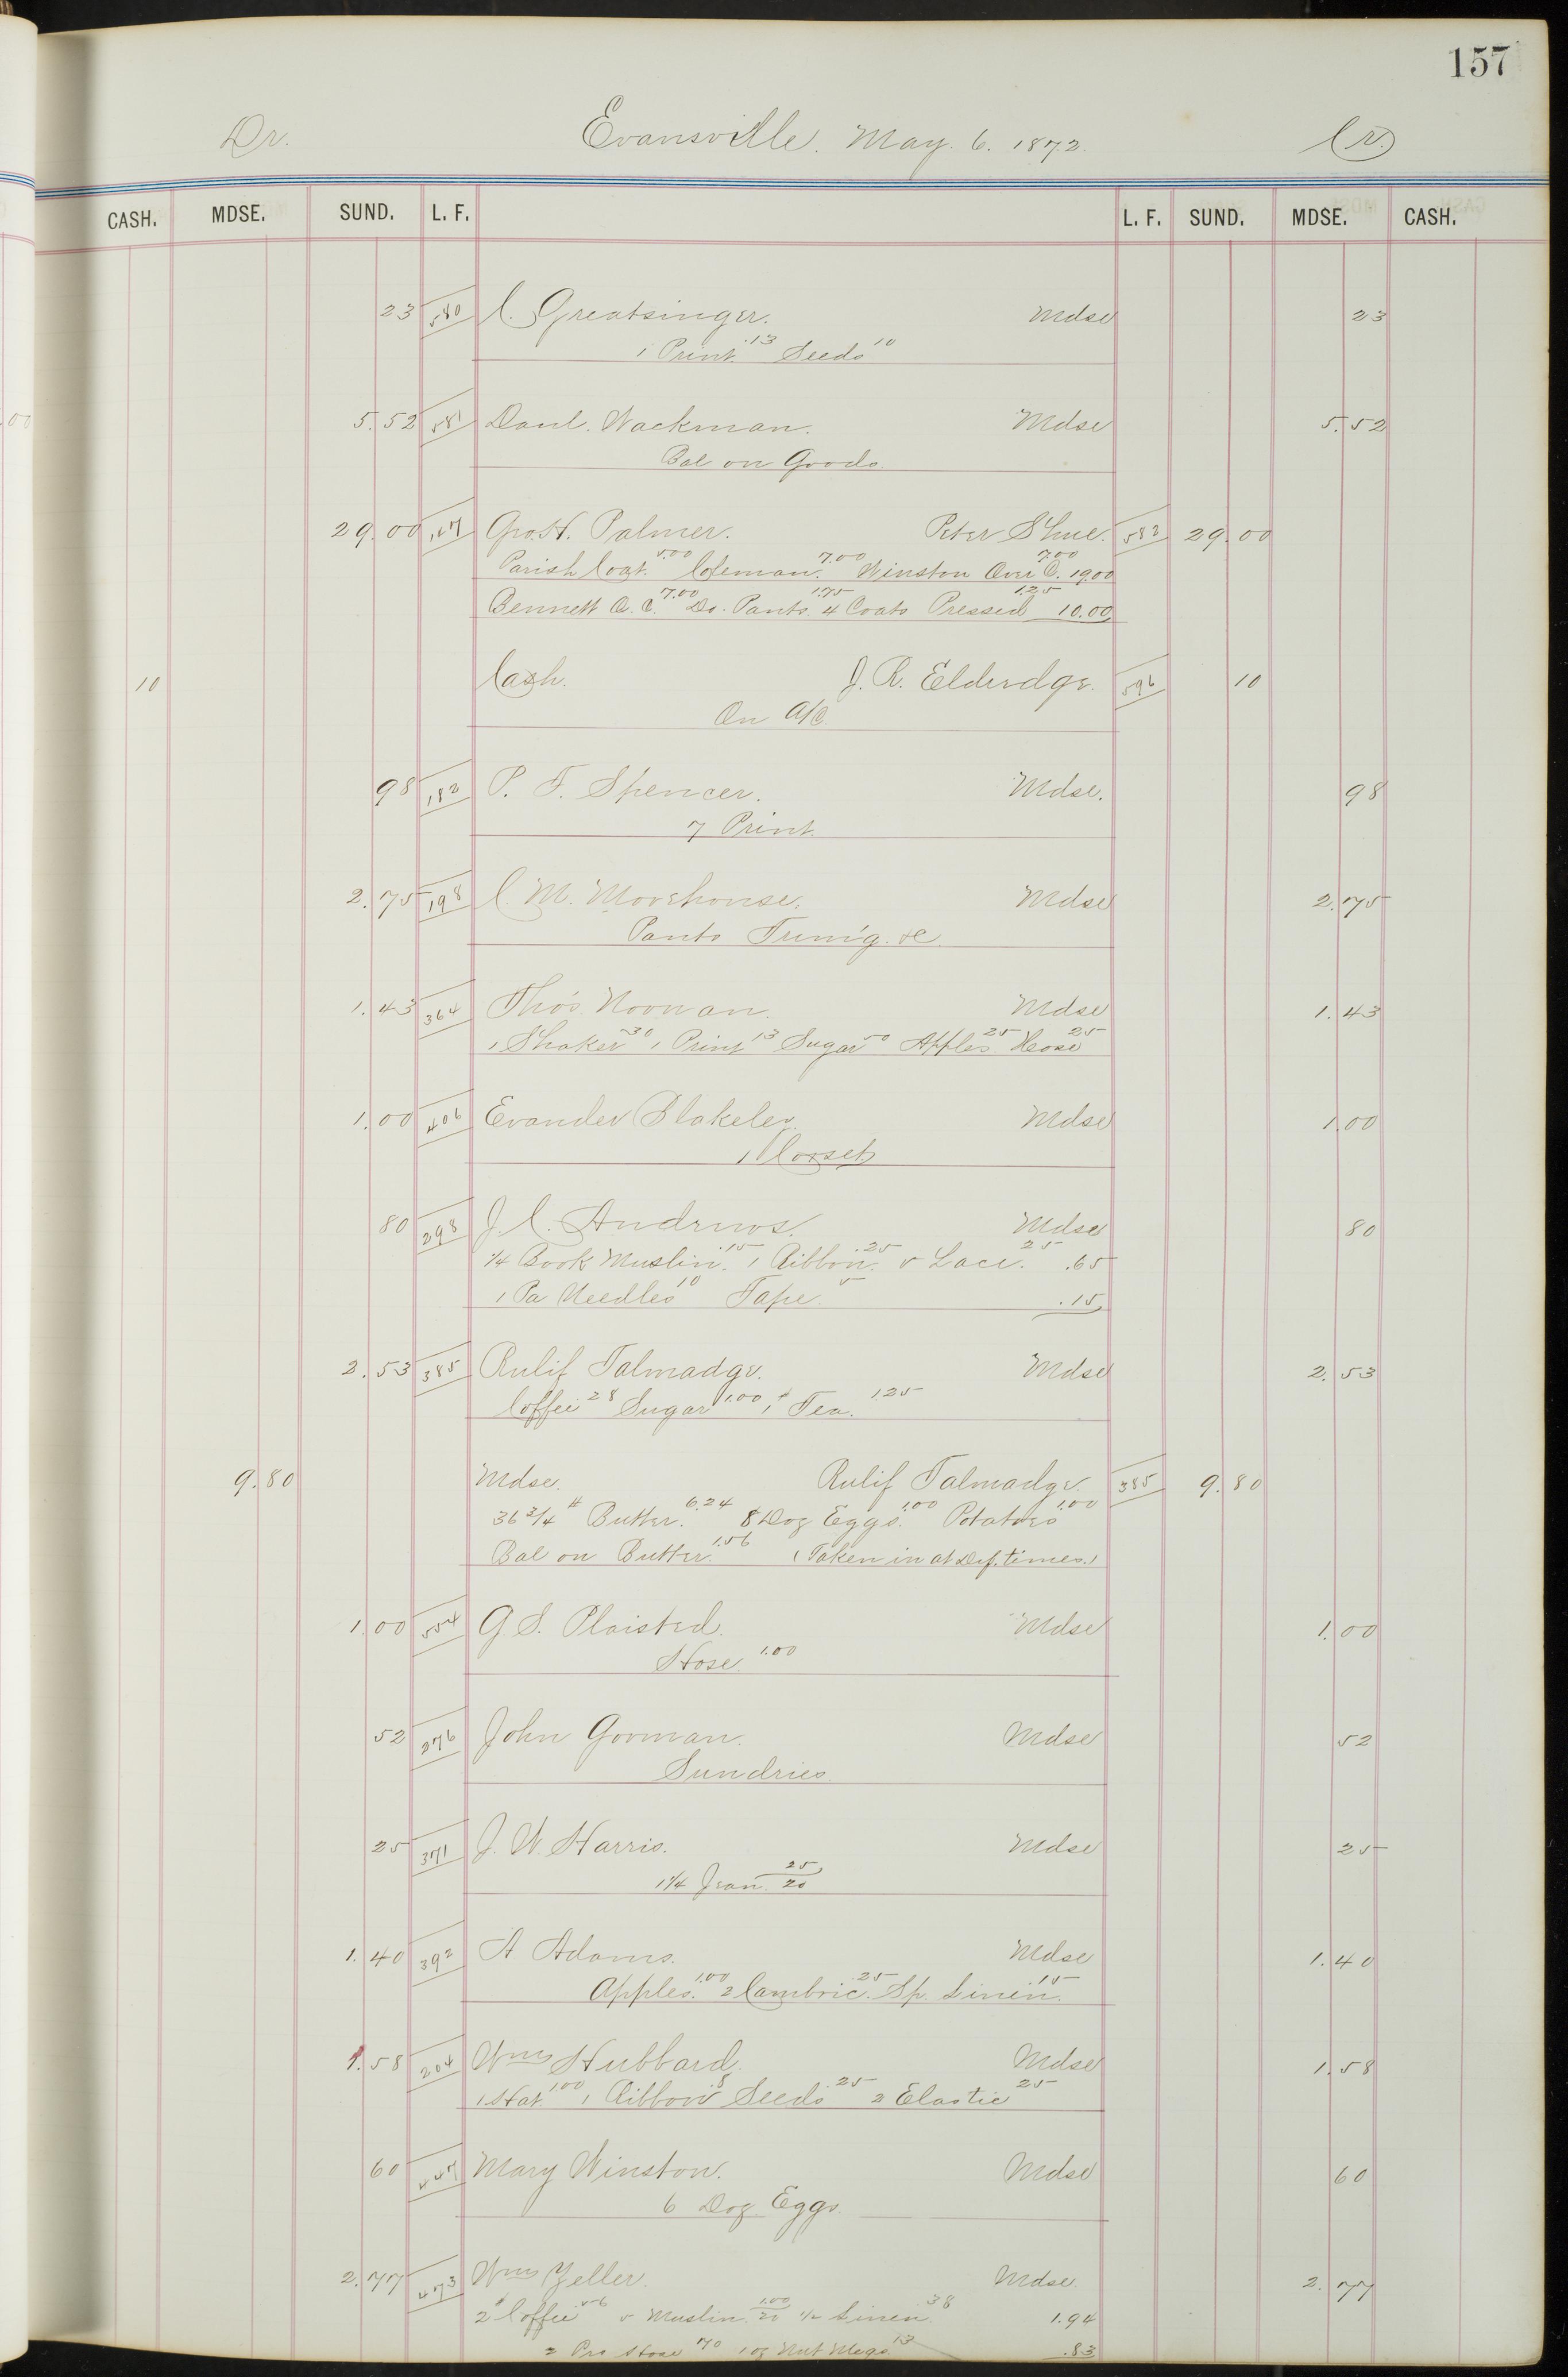 157
Dr. Evansville. May. 6. 1872. Cr.
CASH. MDSE. SUND. L. F. L. F. SUND. MDSE. CASH.
23 580 C. Greatsinger. Mdse 23
1 Print .13 Seeds 10
5.52 581 Danl. Wackman. Mdse 5.52
Bal on Goods
29.00 147 Geo. H. Palmer. Peter Shue. 582 29.00
Parish Coat. 5.00 Coleman. 7.00 Winston Over C. 7.00 19.00
Bennett O. C. 7.00 Do. Pants 1.75 4 Coats Pressed 1.25 10.00
10 Cash. J. R. Elderdge. 596 10
On A/C
98 182 P. F. Spencer. Mdse. 98
7 Print
2.75 198 C. M. Morehouse. Mdse 2.75
Pants Trim'g. &c
1.43 364 Tho's Noonan. Mdse 1.43
1 Shaker 30 1 Print 13 Sugar 50 Apples 25 Hose 25
1.00 406 Evander Blakeley. Mdse 1.00
1 Corset
80 298 J. C. Andrews. Mdse 80
1/4 Book Muslin. .15 1 Ribbon. .25 5 Lace. 25 .65
1 Pa Needles 10 Tape. 5 .15
2.53 385 Rulif Talmadge. Mdse 2.53
Coffee 28 Sugar 1.00 1 # Tea. 1.25
9.80 Mdse. Rulif Talmadge. 385 9.80
36 3/4 # Butter. 6.24 8 Doz Eggs. 1.00 Potatoes 1.00
Bal on Butter. 1.56 (Taken in at Def. times.)
1.00 554 G. S. Plaisted. Mdse 1.00
Hose. 1.00
52 276 John Gorman. Mdse 52
Sundries.
25 371 J. W. Harris. Mdse 25
1 1/4 Jean. 25/20
1.40 392 A Adams. Mdse 1.40
Apples. 1.00 2 Cambric. .25 Sp. Linen. .15
1.58 204 Wm Hubbard. Mdse 1.58
1 Hat 1.00 1 Ribbon 8 Seeds .25 2 Elastic 25
60 447 Mary Winston. Mdse 60
6 Doz Eggs.
2.77 473 Wm Zeller. Mdse 2.77
2 # Coffee 56 5 Muslin. 1.00/20 1/2 Linen. 38 1.94
2 Prs Hose 70 1 oz Nut Megs. 13 .83